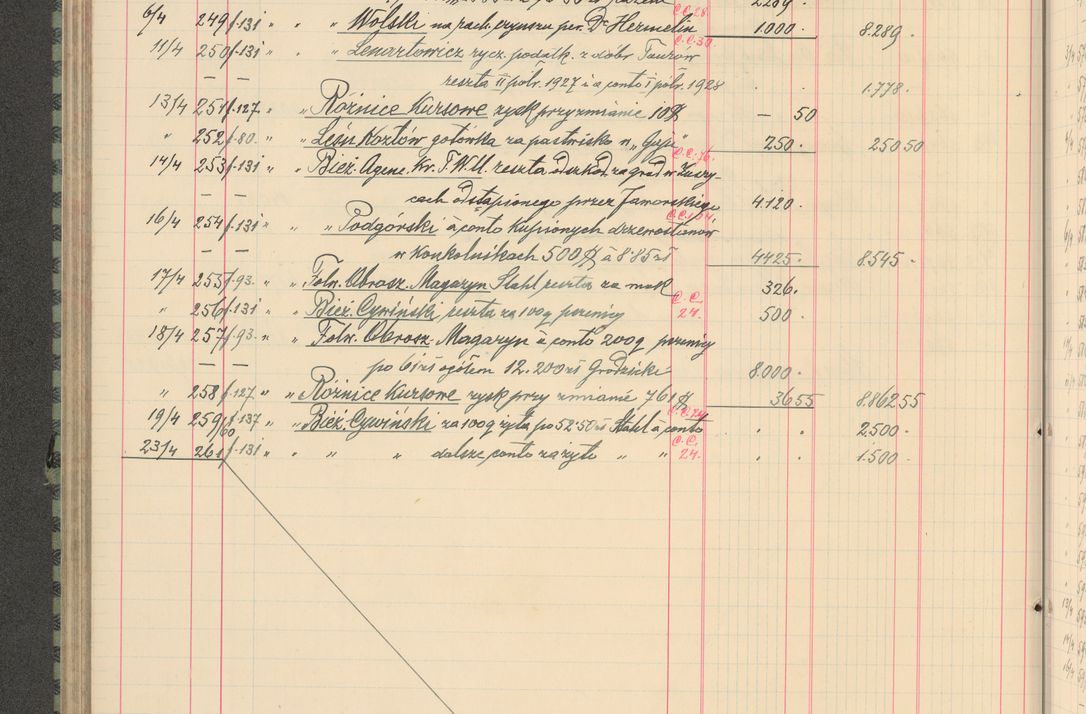 2289.
6/4 249 f.131 " " " Wolski na rach. czynszu per. Dr Hermelin C.C.28. 1.000. 8.289.
11/4 250 f.131 " " " Lenartowicz rycz. podatk. z dóbr Taurów C.C.30.
— — reszta II półr. 1927 i a conto I półr. 1928 . . 1.778.
13/4 251 f.127 " " Różnice Kursowe zysk przy zmianie 10 $ — 50
" 252 f.80. " " Lesn. Kozłów gotówka za pastwisko w „Gaju” 250. 250 50
14/4 253 f.131 " " Bież. Agenc. Kr. T.W.U. reszta odszkod. za grad w C.C.76.
— — cach odstąpionego przez Jaworskiego 4.120.
16/4 254 f.131 " " Podgórski à conto kupionych drzewostanów
— — w Konkolnikach 500 $ à 8.85 zł 4425. 8.545.
17/4 255 f.93. " " Folw. Obrosz. Magazyn Stahl reszta za mak 326.
" 256 f.131 " " Bież. Cywiński reszta za 100 q pszenicy C.C. 24. 500.
18/4 257 f.93. " " Folw. Obrosz. Magazyn à conto 200 q pszenicy
— — po 61 zł ogółem 12.200 zł Grodzicki 8.000.
" 258 f.127 " " Różnice Kursowe zysk przy zmianie 761 $ 36 55 8.862 55
19/4 259/60 f.137 " " Bież. Cywiński za 100 q żyta po 52.50 zł Stahl à conto C.C.24. . . 2.500.
23/4 261 f.131 " " " " dalsze conto za żyto " " C.C. 24. . . 1.500.